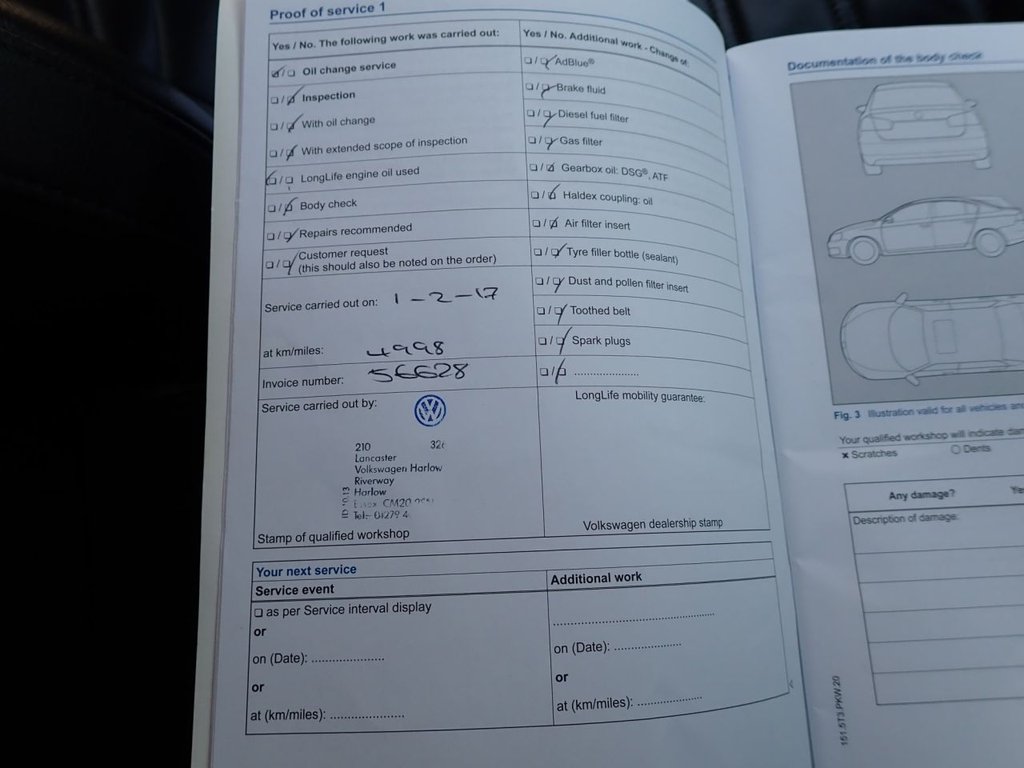 Proof of service 1
Yes / No. The following work was carried out:
Oil change service
Inspection
With oil change
With extended scope of inspection
LongLife engine oil used
Body check
Repairs recommended
Customer request
(this should also be noted on the order)
Service carried out on: 1-2-17
at km/miles: 4998
Invoice number: 56628
Service carried out by:
210 32
Lancaster
Volkswagen Harlow
Riverway
Harlow
Essex CM20
Tel: 01279 4
Stamp of qualified workshop
Yes / No. Additional work - Change of:
AdBlue®
Brake fluid
Diesel fuel filter
Gas filter
Gearbox oil: DSG®, ATF
Haldex coupling: oil
Air filter insert
Tyre filler bottle (sealant)
Dust and pollen filter insert
Toothed belt
Spark plugs
....................
LongLife mobility guarantee:
Volkswagen dealership stamp
Your next service
Service event
as per Service interval display
or
on (Date): ....................
or
at (km/miles): ....................
Additional work
............................................
on (Date): ....................
or
at (km/miles): ....................
Documentation of the body check
Fig. 3 Illustration valid for all vehicles
Your qualified workshop will indicate
× Scratches ○ Dents
Any damage?
Description of damage:
151.5T3.PKW.20